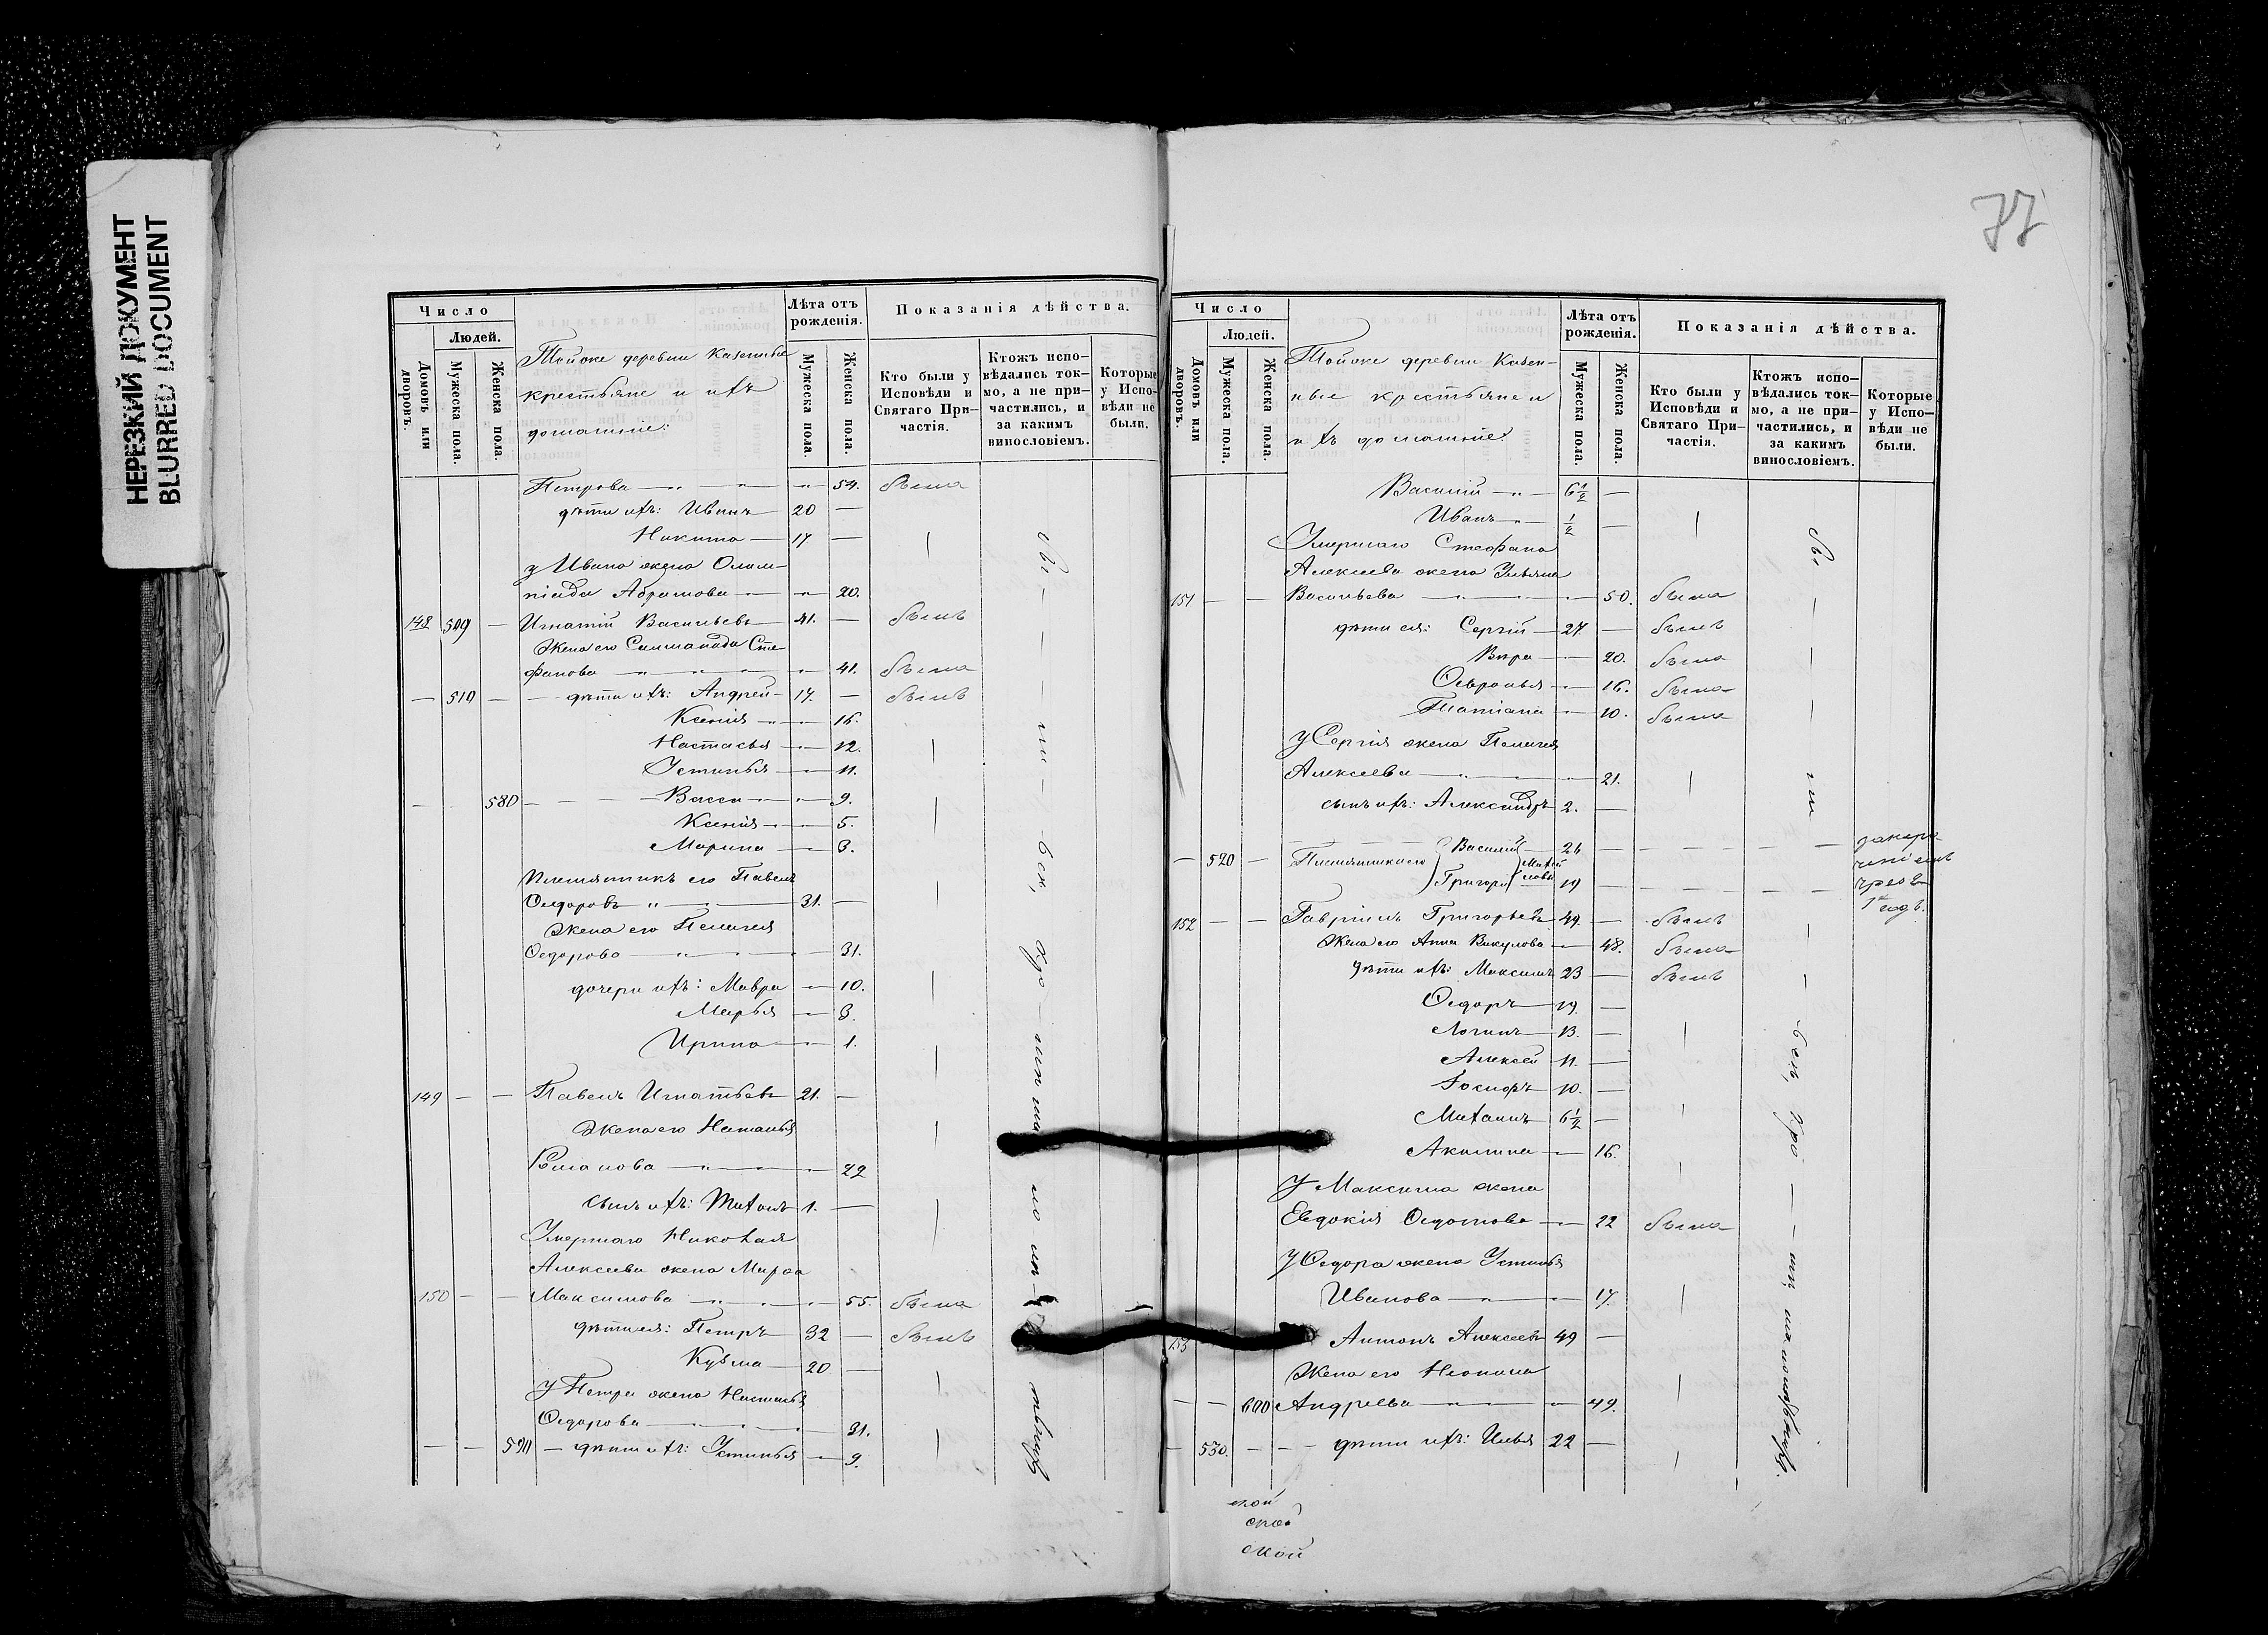 НЕРЕЗКИЙ ДОКУМЕНТ
BLURRED DOCUMENT
Число
Людей.
Домовъ или дворовъ.
Мужеска пола.
Женска пола.
Тойже деревни Казенные
крестьяне и ихъ
домашніе:
Лѣта отъ рожденія.
Мужеска пола.
Женска пола.
Показанія дѣйства.
Кто были у Исповѣди и Святаго При-частія.
Ктожъ испо-вѣдались ток-мо, а не при-частились, и за какимъ винословіемъ.
Которые у Испо-вѣди не были.
Петрова — „ — „ — 54. была
дѣти ихъ: Иванъ 20 —
Никита — 17 —
у Ивана жена Олим-
піада Абрамова — 20.
148 509 — Игнатій Васильевъ 41. — былъ
Жена его Саломанида Сте
фанова — 41. была
— 510 — дѣти ихъ: Андрей 17. — былъ
Ксенія — 16.
Настасья — 12.
Устинья — 11.
— 580 — Васса — 9.
Ксенія — 5.
Марина — 3.
Племянникъ его Павелъ
Ѳедоровъ „ — 31. —
Жена его Пелагея
Ѳедорова — 31.
дочери ихъ: Мавра — 10.
Марья — 3.
Ирина — 1.
149 — — Павелъ Игнатьевъ 21. —
Жена его Наталья
Романова — 22
сынъ ихъ: Михаилъ 1. —
Умершаго Николая
Алексѣева жена Марѳа
150 — — Максимова — 55. была
дѣти ея: Петръ 32 — былъ
Кузма — 20 —
У Петра жена Настасья
Ѳедорова — 31.
— — 590 — дѣти ихъ: Устинья — 9.
77
Число
Людей.
Домовъ или дворовъ.
Мужеска пола.
Женска пола.
Тойже деревни Казен-
ные крестьяне и
ихъ домашніе:
Лѣта отъ рожденія.
Мужеска пола.
Женска пола.
Показанія дѣйства.
Кто были у Исповѣди и Святаго При-частія.
Ктожъ испо-вѣдались ток-мо, а не при-частились, и за какимъ винословіемъ.
Которые у Испо-вѣди не были.
Василій — 6½ —
Иванъ — ½ —
Умершаго Стефана
Алексѣева жена Ульяна
151 — — Васильева — 50. была
дѣти ея: Сергій — 27. — былъ
Вѣра — 20. была
Ѳевронья — 16. была
Татіана — 10. была
У Сергія жена Пелагея
Алексѣева — 21.
сынъ ихъ: Александръ 2. —
— 520 — Племянники его Василій 26
Григорій 19
1 годъ.
152 — — Гавріилъ Григорьевъ 49. — былъ
Жена его Анна Викулова — 48. была
дѣти ихъ: Максимъ 23 — былъ
Ѳедоръ — 19. —
Логинъ — 13. —
Алексѣй 11. —
10. —
Михаилъ 6½ —
Акилина — 16.
У Максима жена
Евдокія Ѳедотова — 22 была
У Ѳедора жена Устинья
Иванова — 17.
153 Антонъ Алексѣевъ 49 —
Жена его Неонила
— — 600 Андреева — 49.
— 530. — дѣти ихъ: Илья 22 —
ской
ской